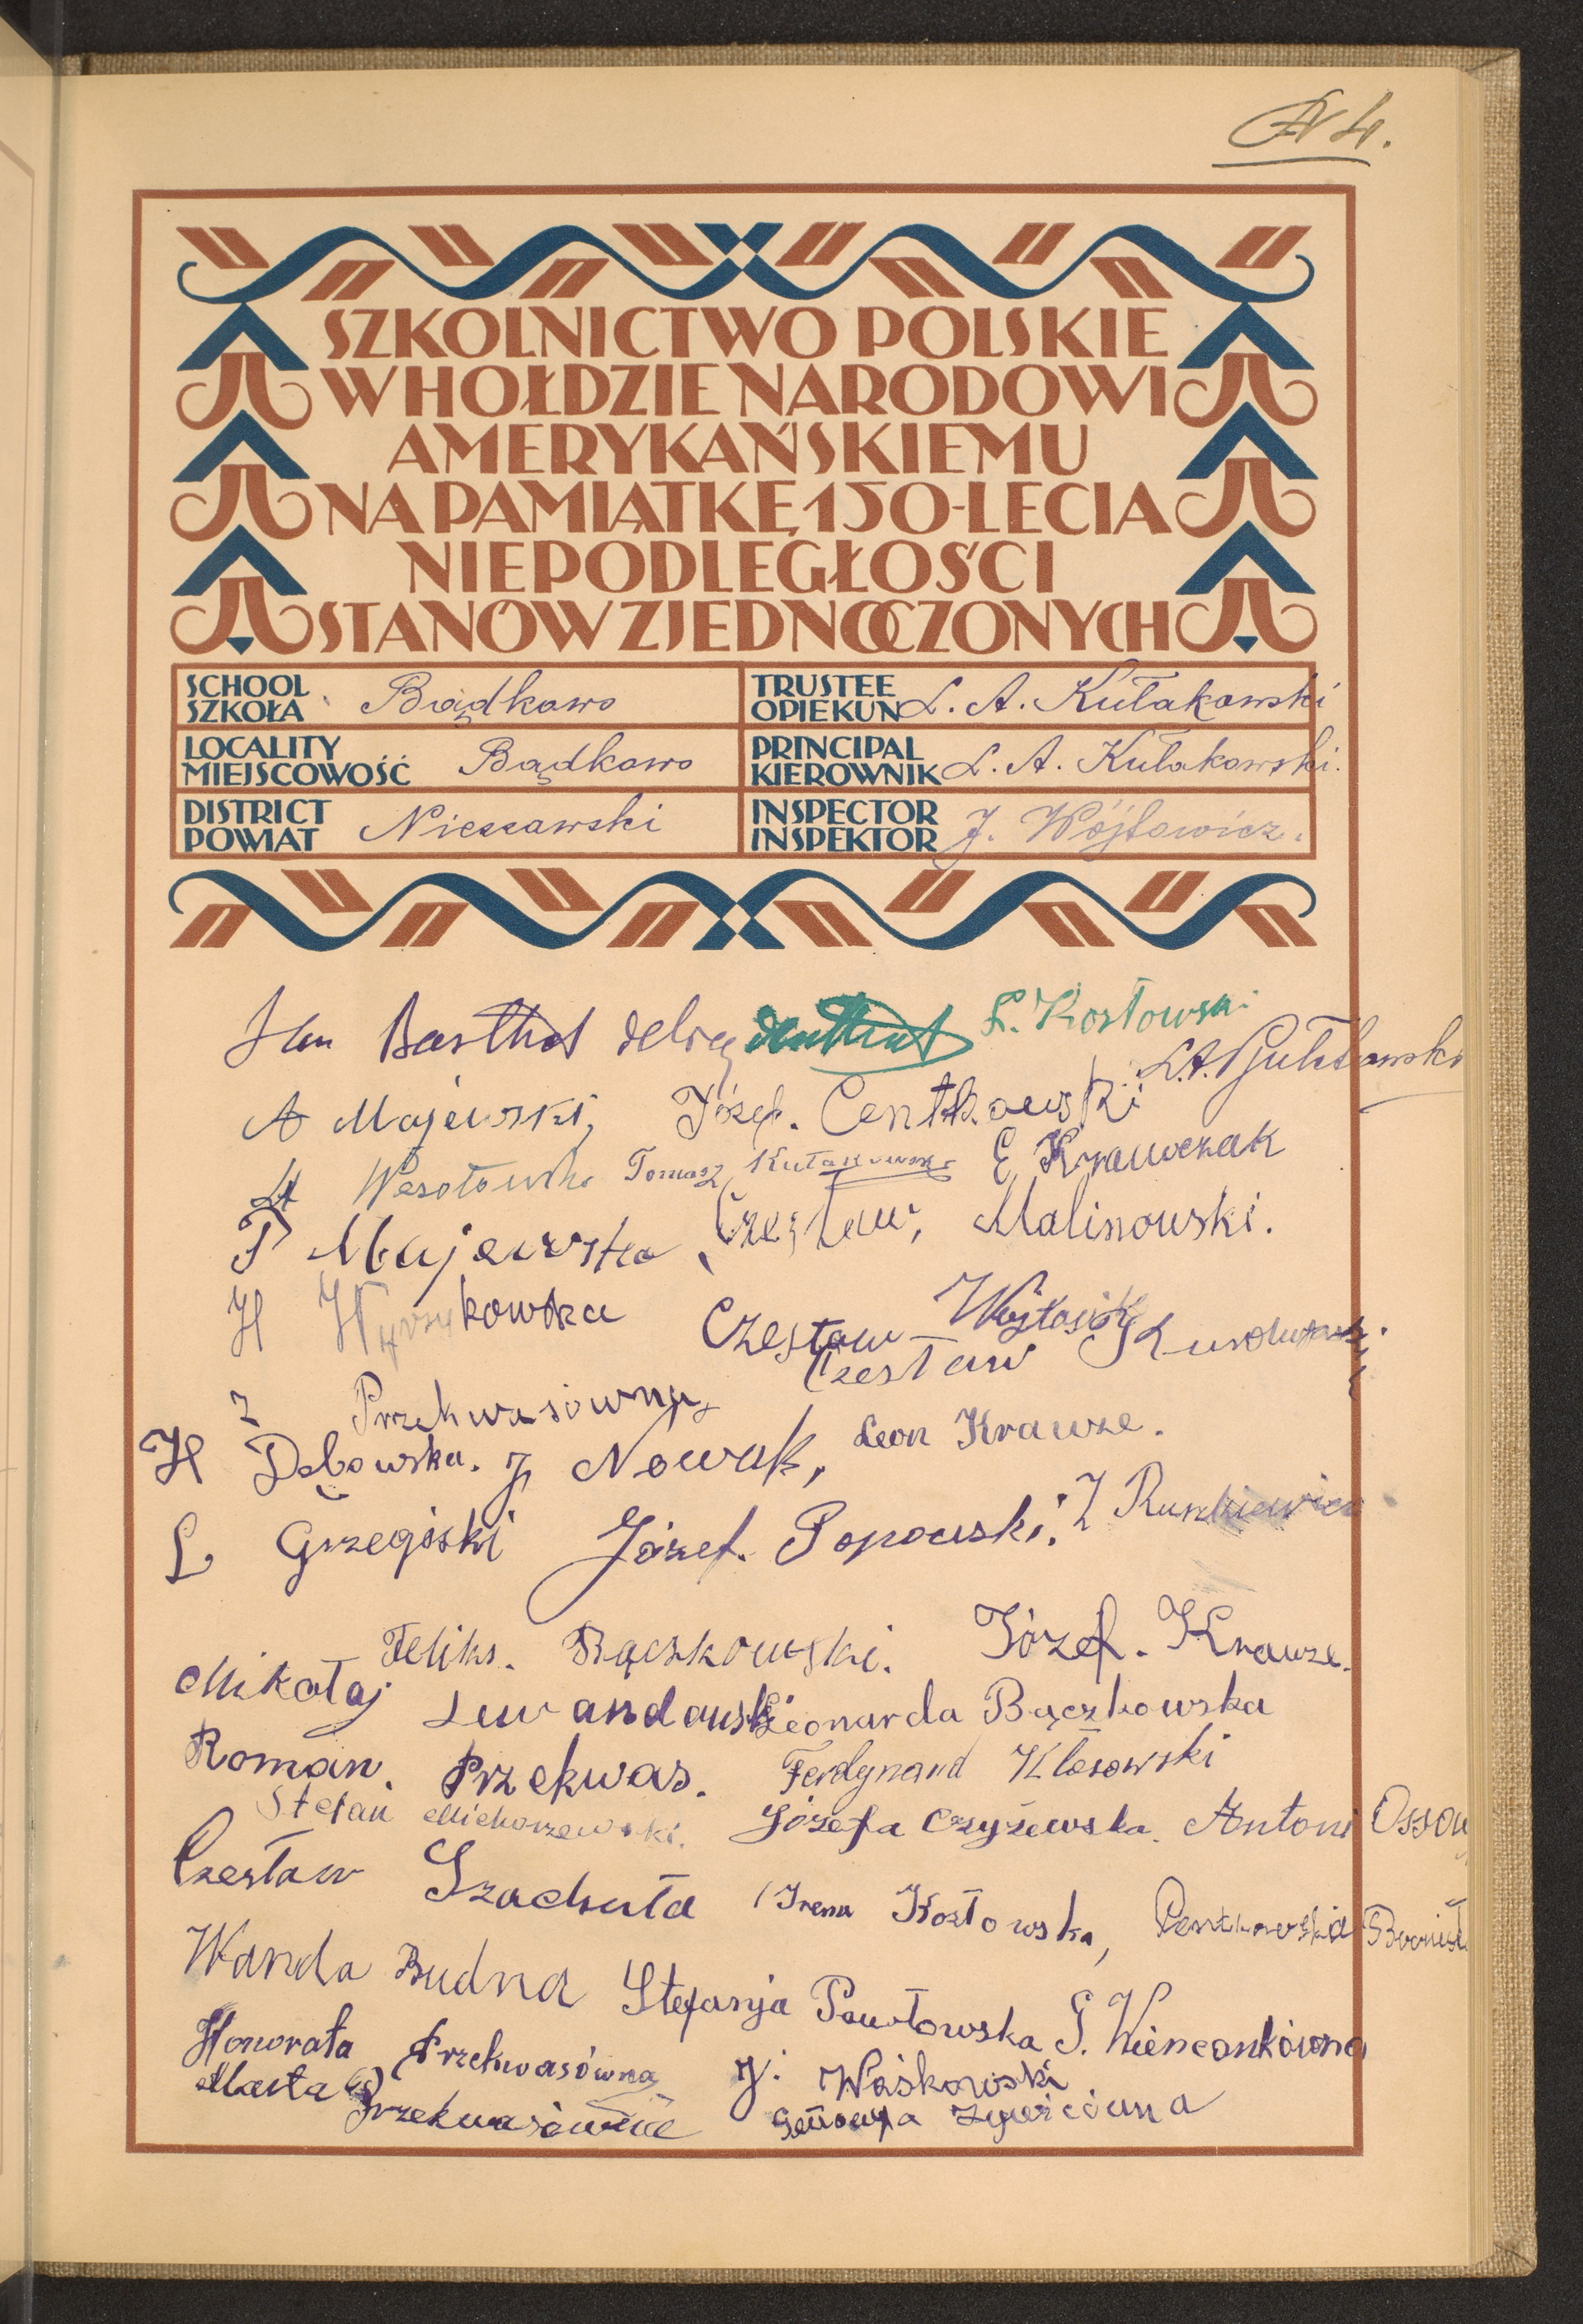 N 4.
SZKOLNICTWO POLSKIE
W HOŁDZIE NARODOWI
AMERYKAŃSKIEMU
NA PAMIĄTKĘ 150-LECIA
NIEPODLEGŁOŚCI
STANÓW ZJEDNOCZONYCH
SCHOOL SZKOŁA Bądkowo
TRUSTEE OPIEKUN L. A. Kułakowski
LOCALITY MIEJSCOWOŚĆ Bądkowo
PRINCIPAL KIEROWNIK L. A. Kułakowski.
DISTRICT POWIAT Nieszawski
INSPECTOR INSPEKTOR J. Wójtowicz.
Jan L. Kozłowski
A Majewski, Józef. Centkowski L.A.
Wesołowska Tomasz Kułakowski E Krawczak
P Majewska, Czesław, Malinowski.
H Czesław Wojtasik
Z Przekwasówna Czesław
H Dębowska. J Nowak, Leon Krauze.
L Grzegóski Józef. Popowski. Z Ruszkiewicz
Feliks. Bączkowski. Józef. Krauze.
Mikołaj Lewandowski Leonarda Bączkowska
Roman. Przekwas. Ferdynand Kłosowski
Stefan Michorzewski. Józefa Czyżewska. Antoni Ossow
Czesław Szachuta Irena Kozłowska, Pentkowska Bronisł
Wanda Budna Stefanja Pawłowska S. Wiencankówna
Honorata Przekwasówna J. Waśkowski
Marta Przekwasówna Genowefa Zywicówna